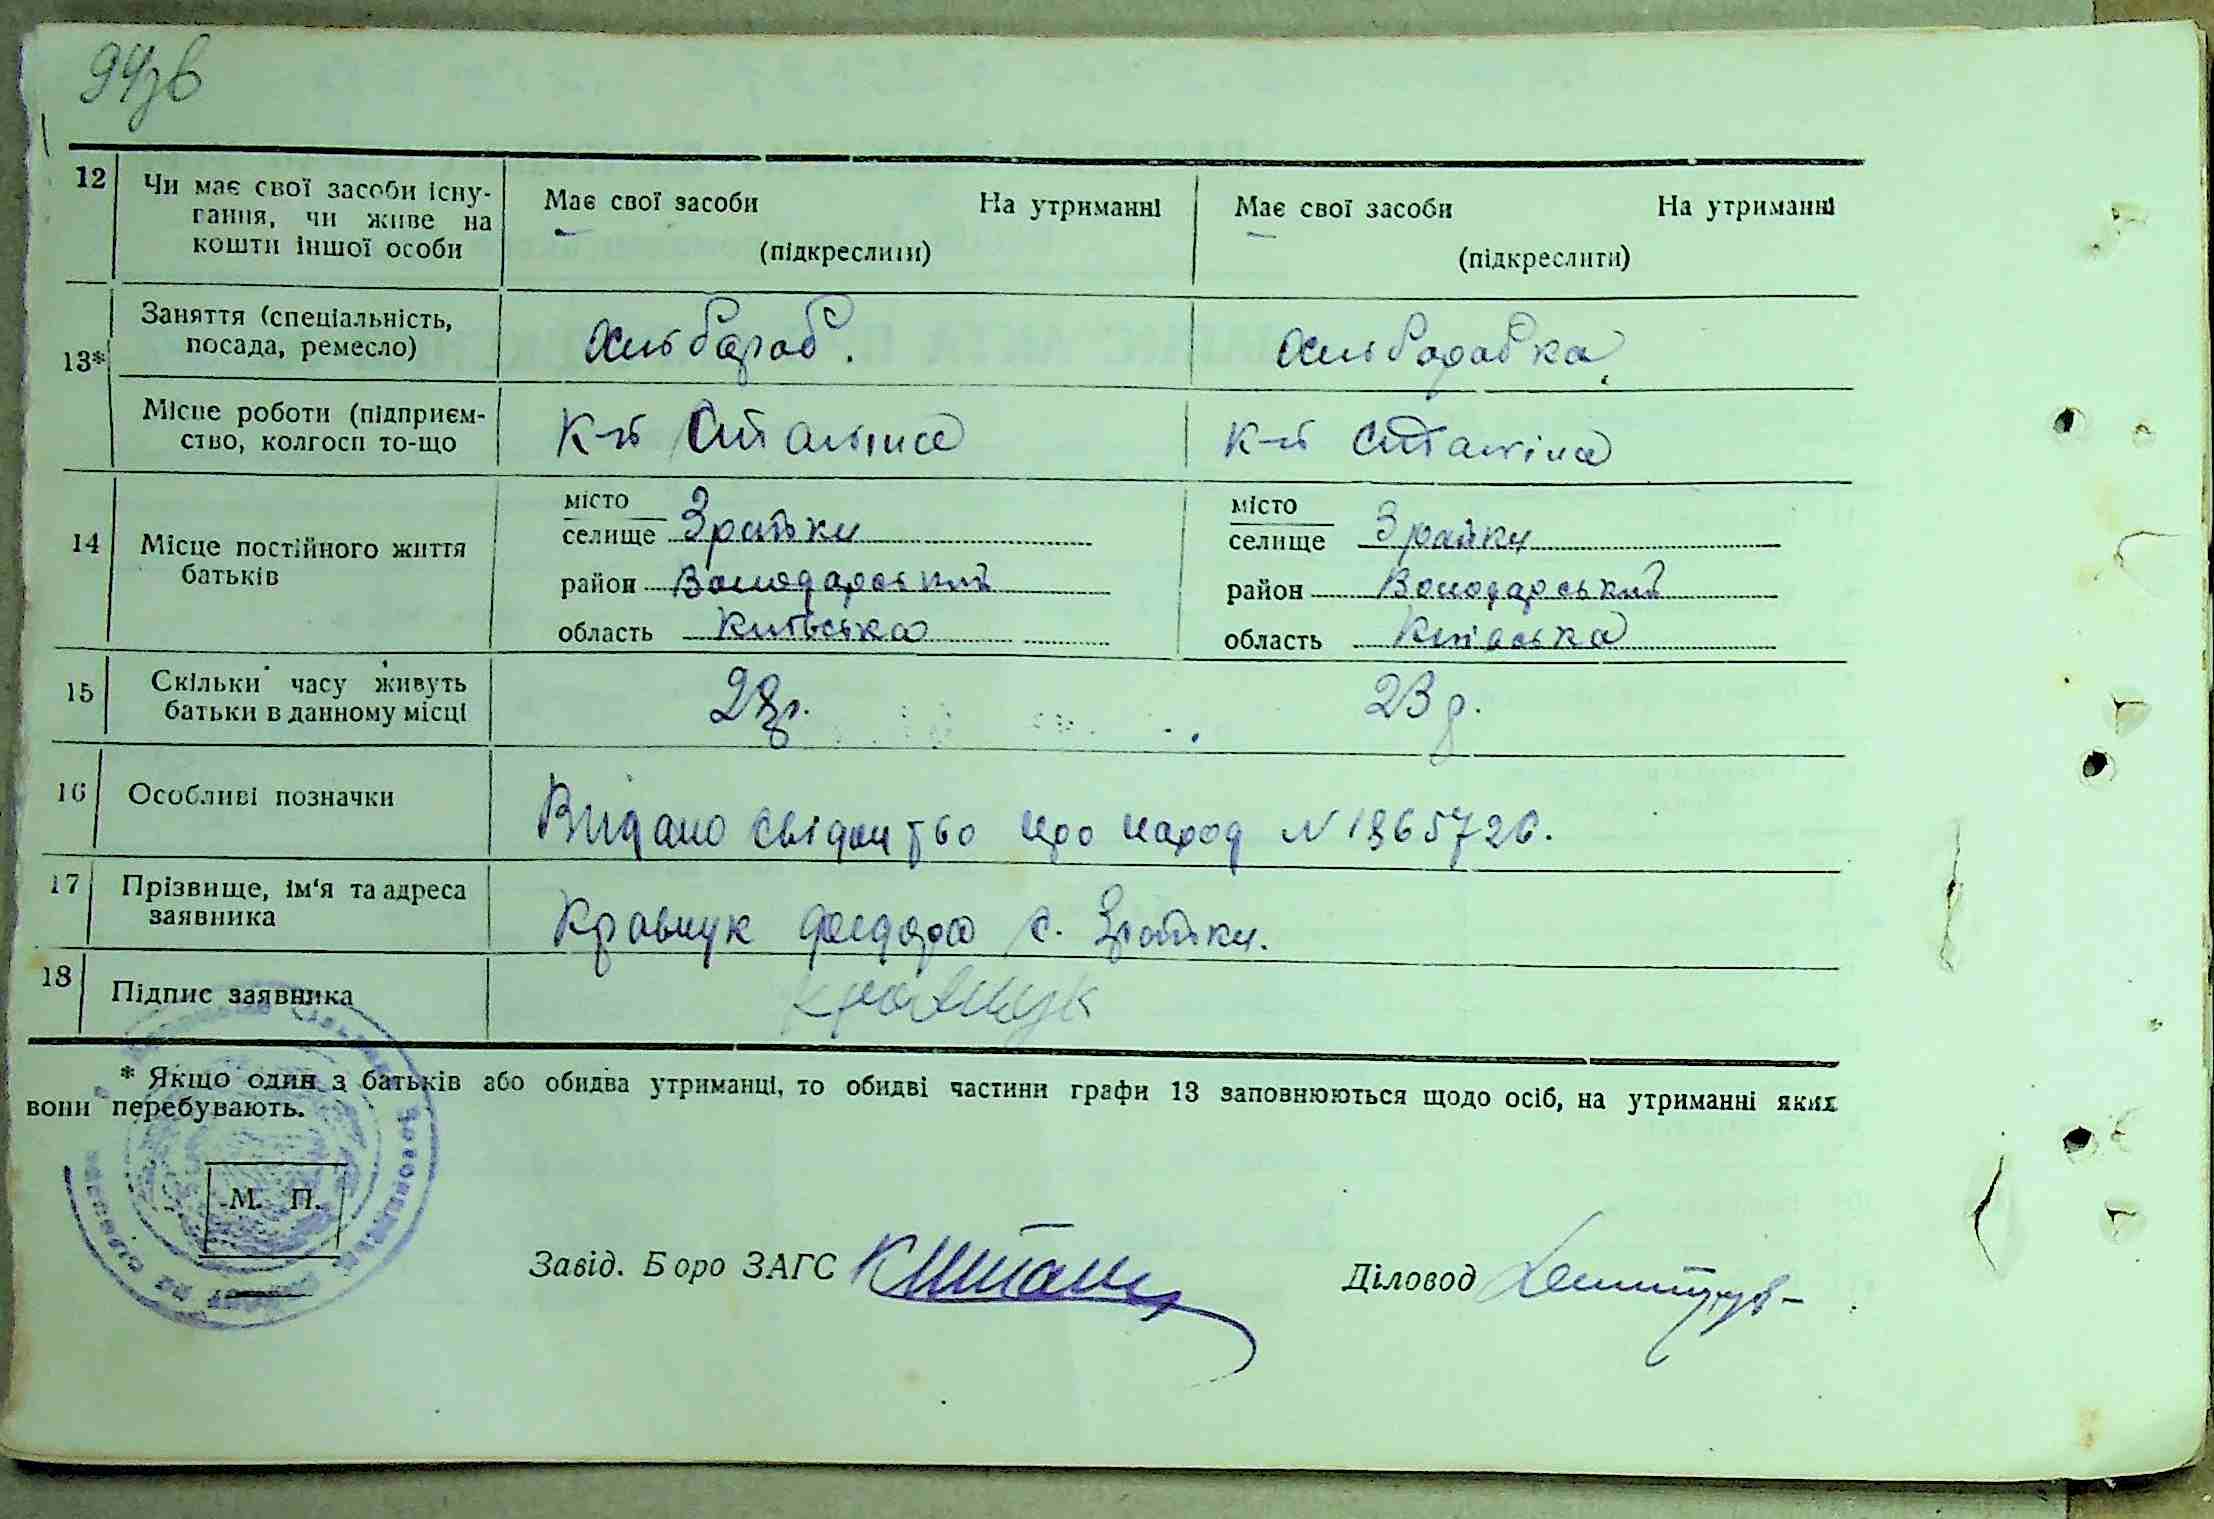 94зв
12 Чи має свої засоби існу- Має свої засоби На утриманні Має свої засоби На утриманні
гання, чи живе на
кошти іншої особи (підкреслити) (підкреслити)
Заняття (спеціальність,
13* посада, ремесло)
Місце роботи (підприєм- К-п Сталіна К-п Сталіна
ство, колгосп то-що
місто місто
14 Місце постійного життя селище Зрайки селище Зрайки
батьків район Володарський район Володарський
область Київська область Київська
15 Скільки часу живуть 23 р.
батьки в данному місці
16 Особливі позначки Видано свідоцтво про народ N 1865726.
17 Прізвище, ім'я та адреса Кравчук Федора с. Зрайки.
заявника
18 Підпис заявника Кравчук
* Якщо один з батьків або обидва утриманці, то обидві частини графи 13 заповнюються щодо осіб, на утриманні яких
вони перебувають.
М. П.
Завід. Боро ЗАГС Діловод